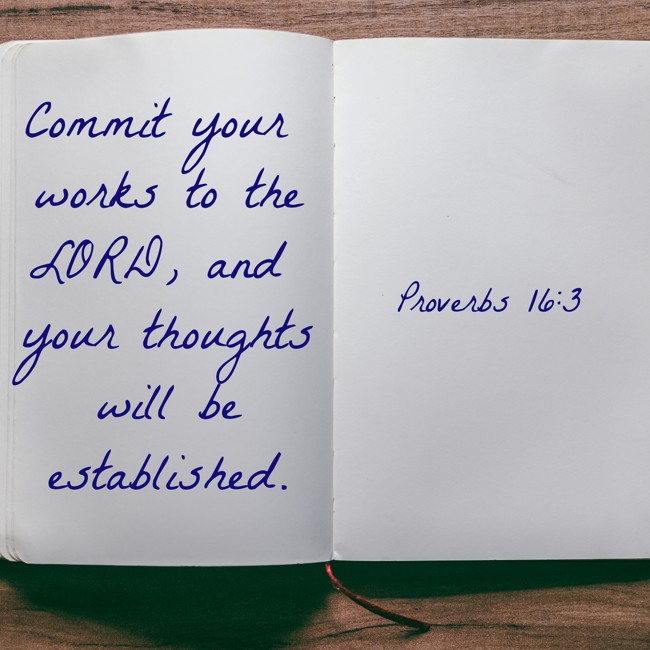 Commit your
works to the
LORD, and
your thoughts
will be
established.
Proverbs 16:3